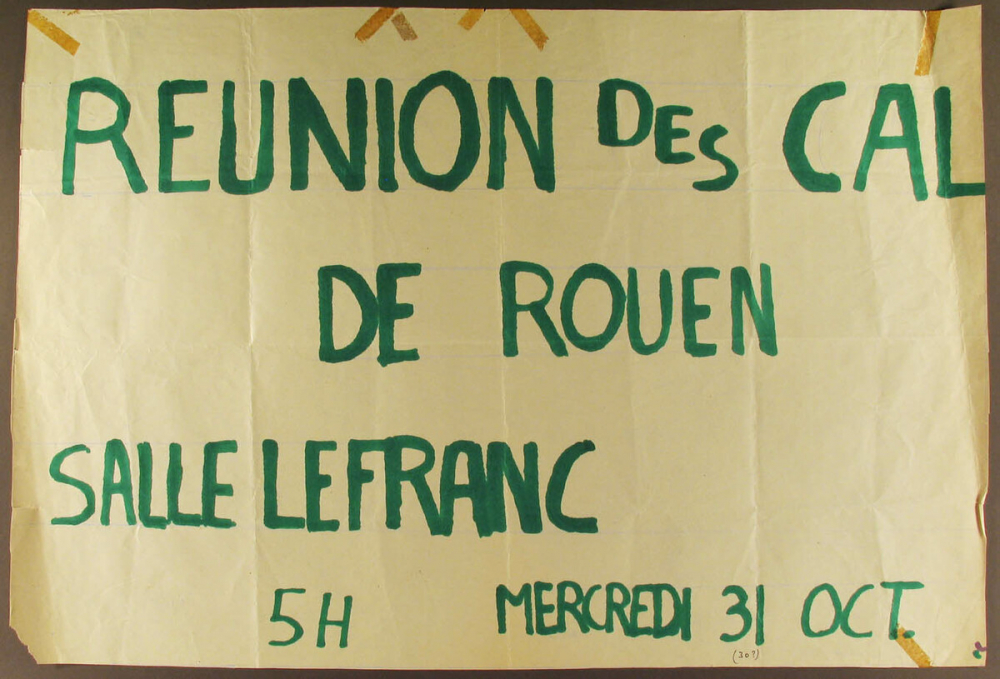 REUNION DES CAL
DE ROUEN
SALLE LEFRANC
5H MERCREDI 31 OCT.
(30?)